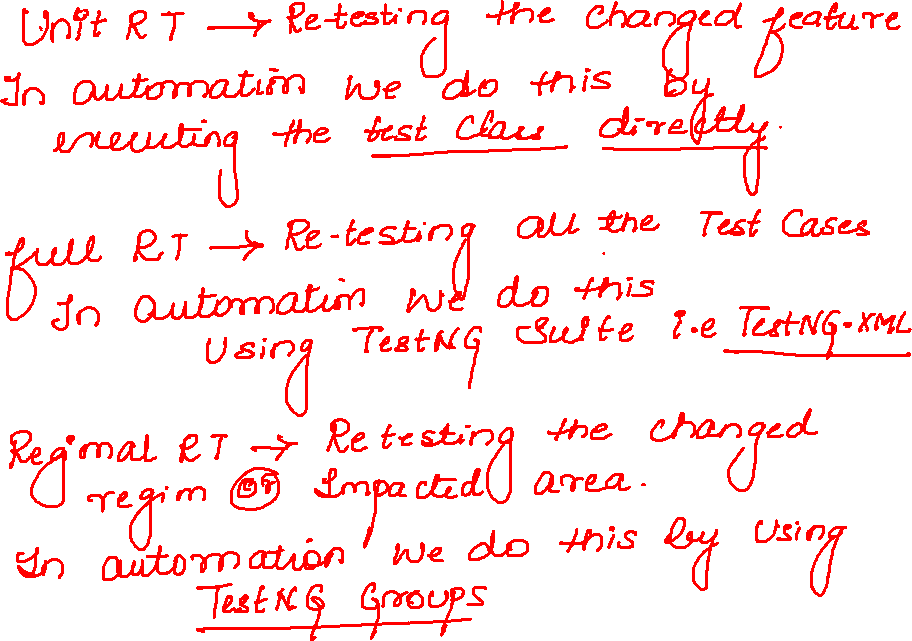 Unit RT → Re-testing the changed feature
In automation we do this by
executing the test class directly.
full RT → Re-testing all the Test Cases
In automation we do this
Using TestNG Suite i.e TestNG.XML
Regional RT → Retesting the changed
region or Impacted area.
In automation we do this by using
TestNG Groups